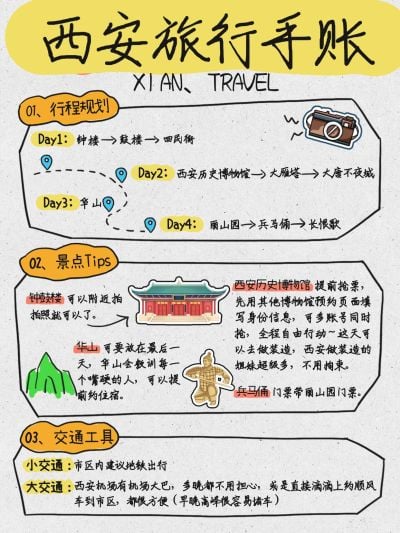 西安旅行手账
XIAN、TRAVEL
01、行程规划
Day1：钟楼→鼓楼→回民街
Day2：西安历史博物馆→大雁塔→大唐不夜城
Day3：华山
Day4：骊山园→兵马俑→长恨歌
02、景点Tips
钟鼓楼 可以附近拍
拍照就可以了。
西安历史博物馆 提前抢票，
先用其他博物馆预约页面填
写身份信息，可多账号同时
抢，全程自由行动~这天可
以去做装造，西安做装造的
姐妹超级多，不用拘束。
华山 可要放在最后一
天，华山会教训每一
个嘴硬的人，可以提
前约住宿。
兵马俑 门票带丽山园门票。
03、交通工具
小交通：市区内建议地铁出行
大交通：西安机场有机场大巴，多晚都不用担心，或是直接滴滴上约顺风
车到市区，都很方便（早晚高峰很容易堵车）